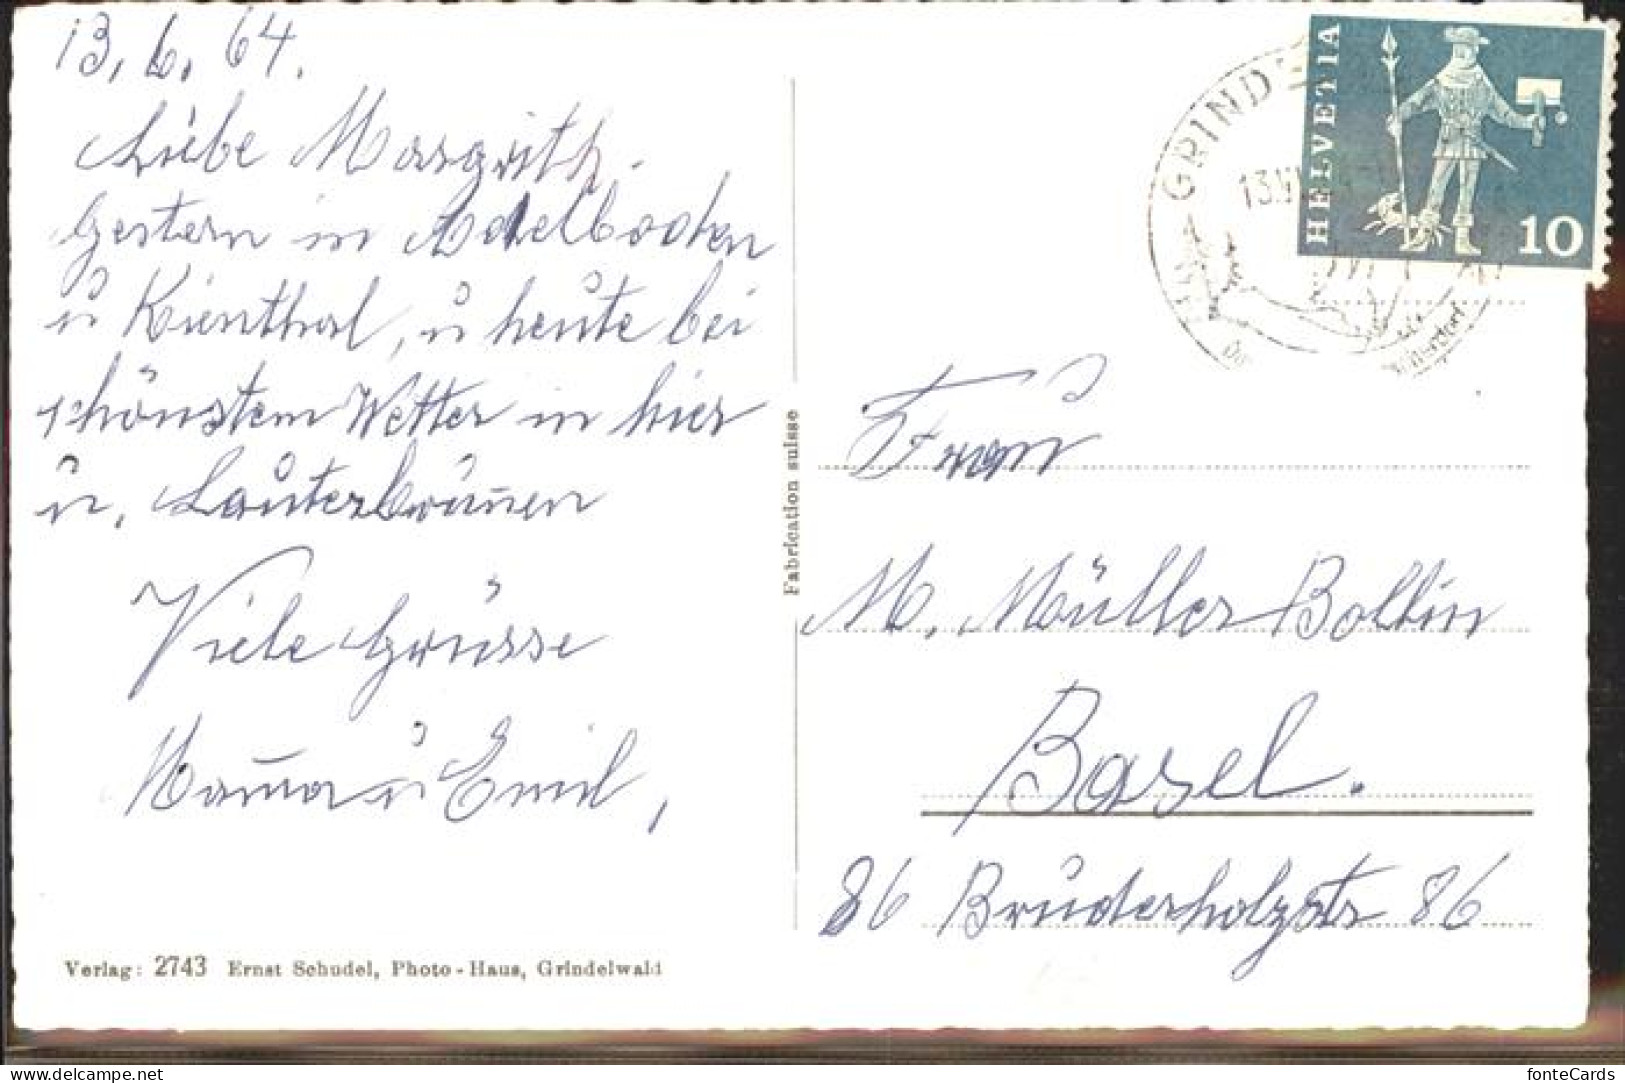 13. 6. 64.
Liebe Margrith.
Gestern in Adelboden
u Kienthal, u heute bei
schönstem Wetter in hier
u. Lauterbrunnen
Viele Grüsse
Mama u Emil,
Verlag: 2743 Ernst Schudel, Photo-Haus, Grindelwald
Fabrication suisse
GRINDE
13.VI
HELVETIA
10
Frau
M. Müller Bollin
Basel.
86 Bruderholzstr 86
delcampe.net
fonteCards